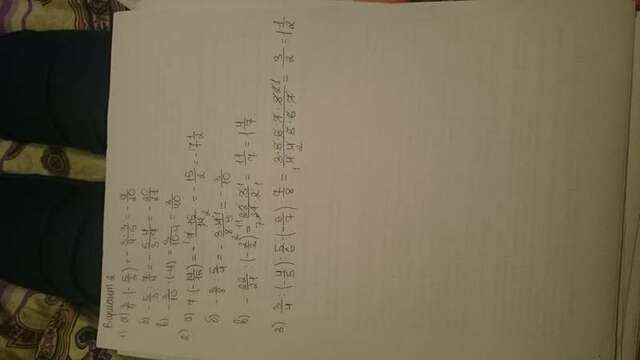 Вариант 2
1) а) 3/4 : (-5/3) = - 3·3/4·5 = - 9/20
б) - 5/3 : 7/4 = - 5·4/3·7 = - 20/21
в) - 3/10 : (-4) = 3/10·4 = 3/40
2) а) 7 : (-14/15) = - 7·15/14 = - 15/2 = - 7 1/2
б) - 3/8 : 5/4 = - 3·4/8·5 = - 3/10
в) - 22/21 : (- 2/3) = 22·3/21·2 = 11/7 = 1 4/7
3) 3/4 : (- 4/5) : 5/6 : (- 6/7) : 7/8 = 3·5·6·7·8/4·4·5·6·7 = 3/2 = 1 1/2